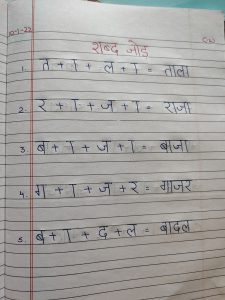 10-1-22
शब्द जोड़
1. त + ा + ल + ा = ताला
2. र + ा + ज + ा = राजा
3 ब + ा + ज + ा = बाजा
4. ग + ा + ज + र = गाजर
5. ब + ा + द + ल = बादल